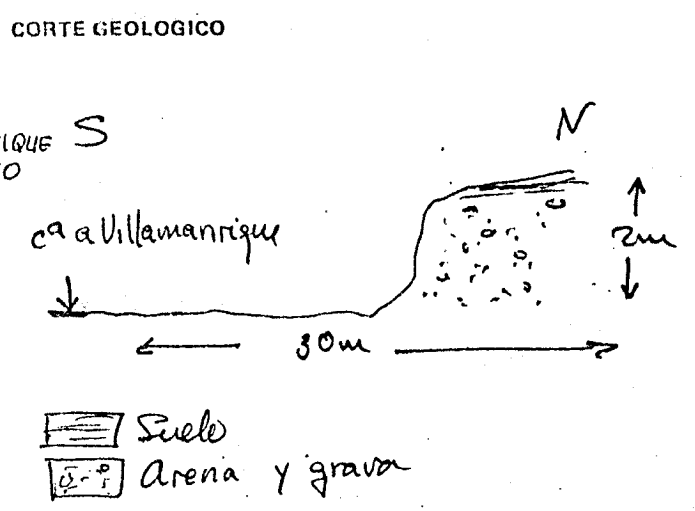 CORTE GEOLOGICO
IQUE S
O
N
cª a Villamanrique
2m
30m
Suelo
Arena y grava